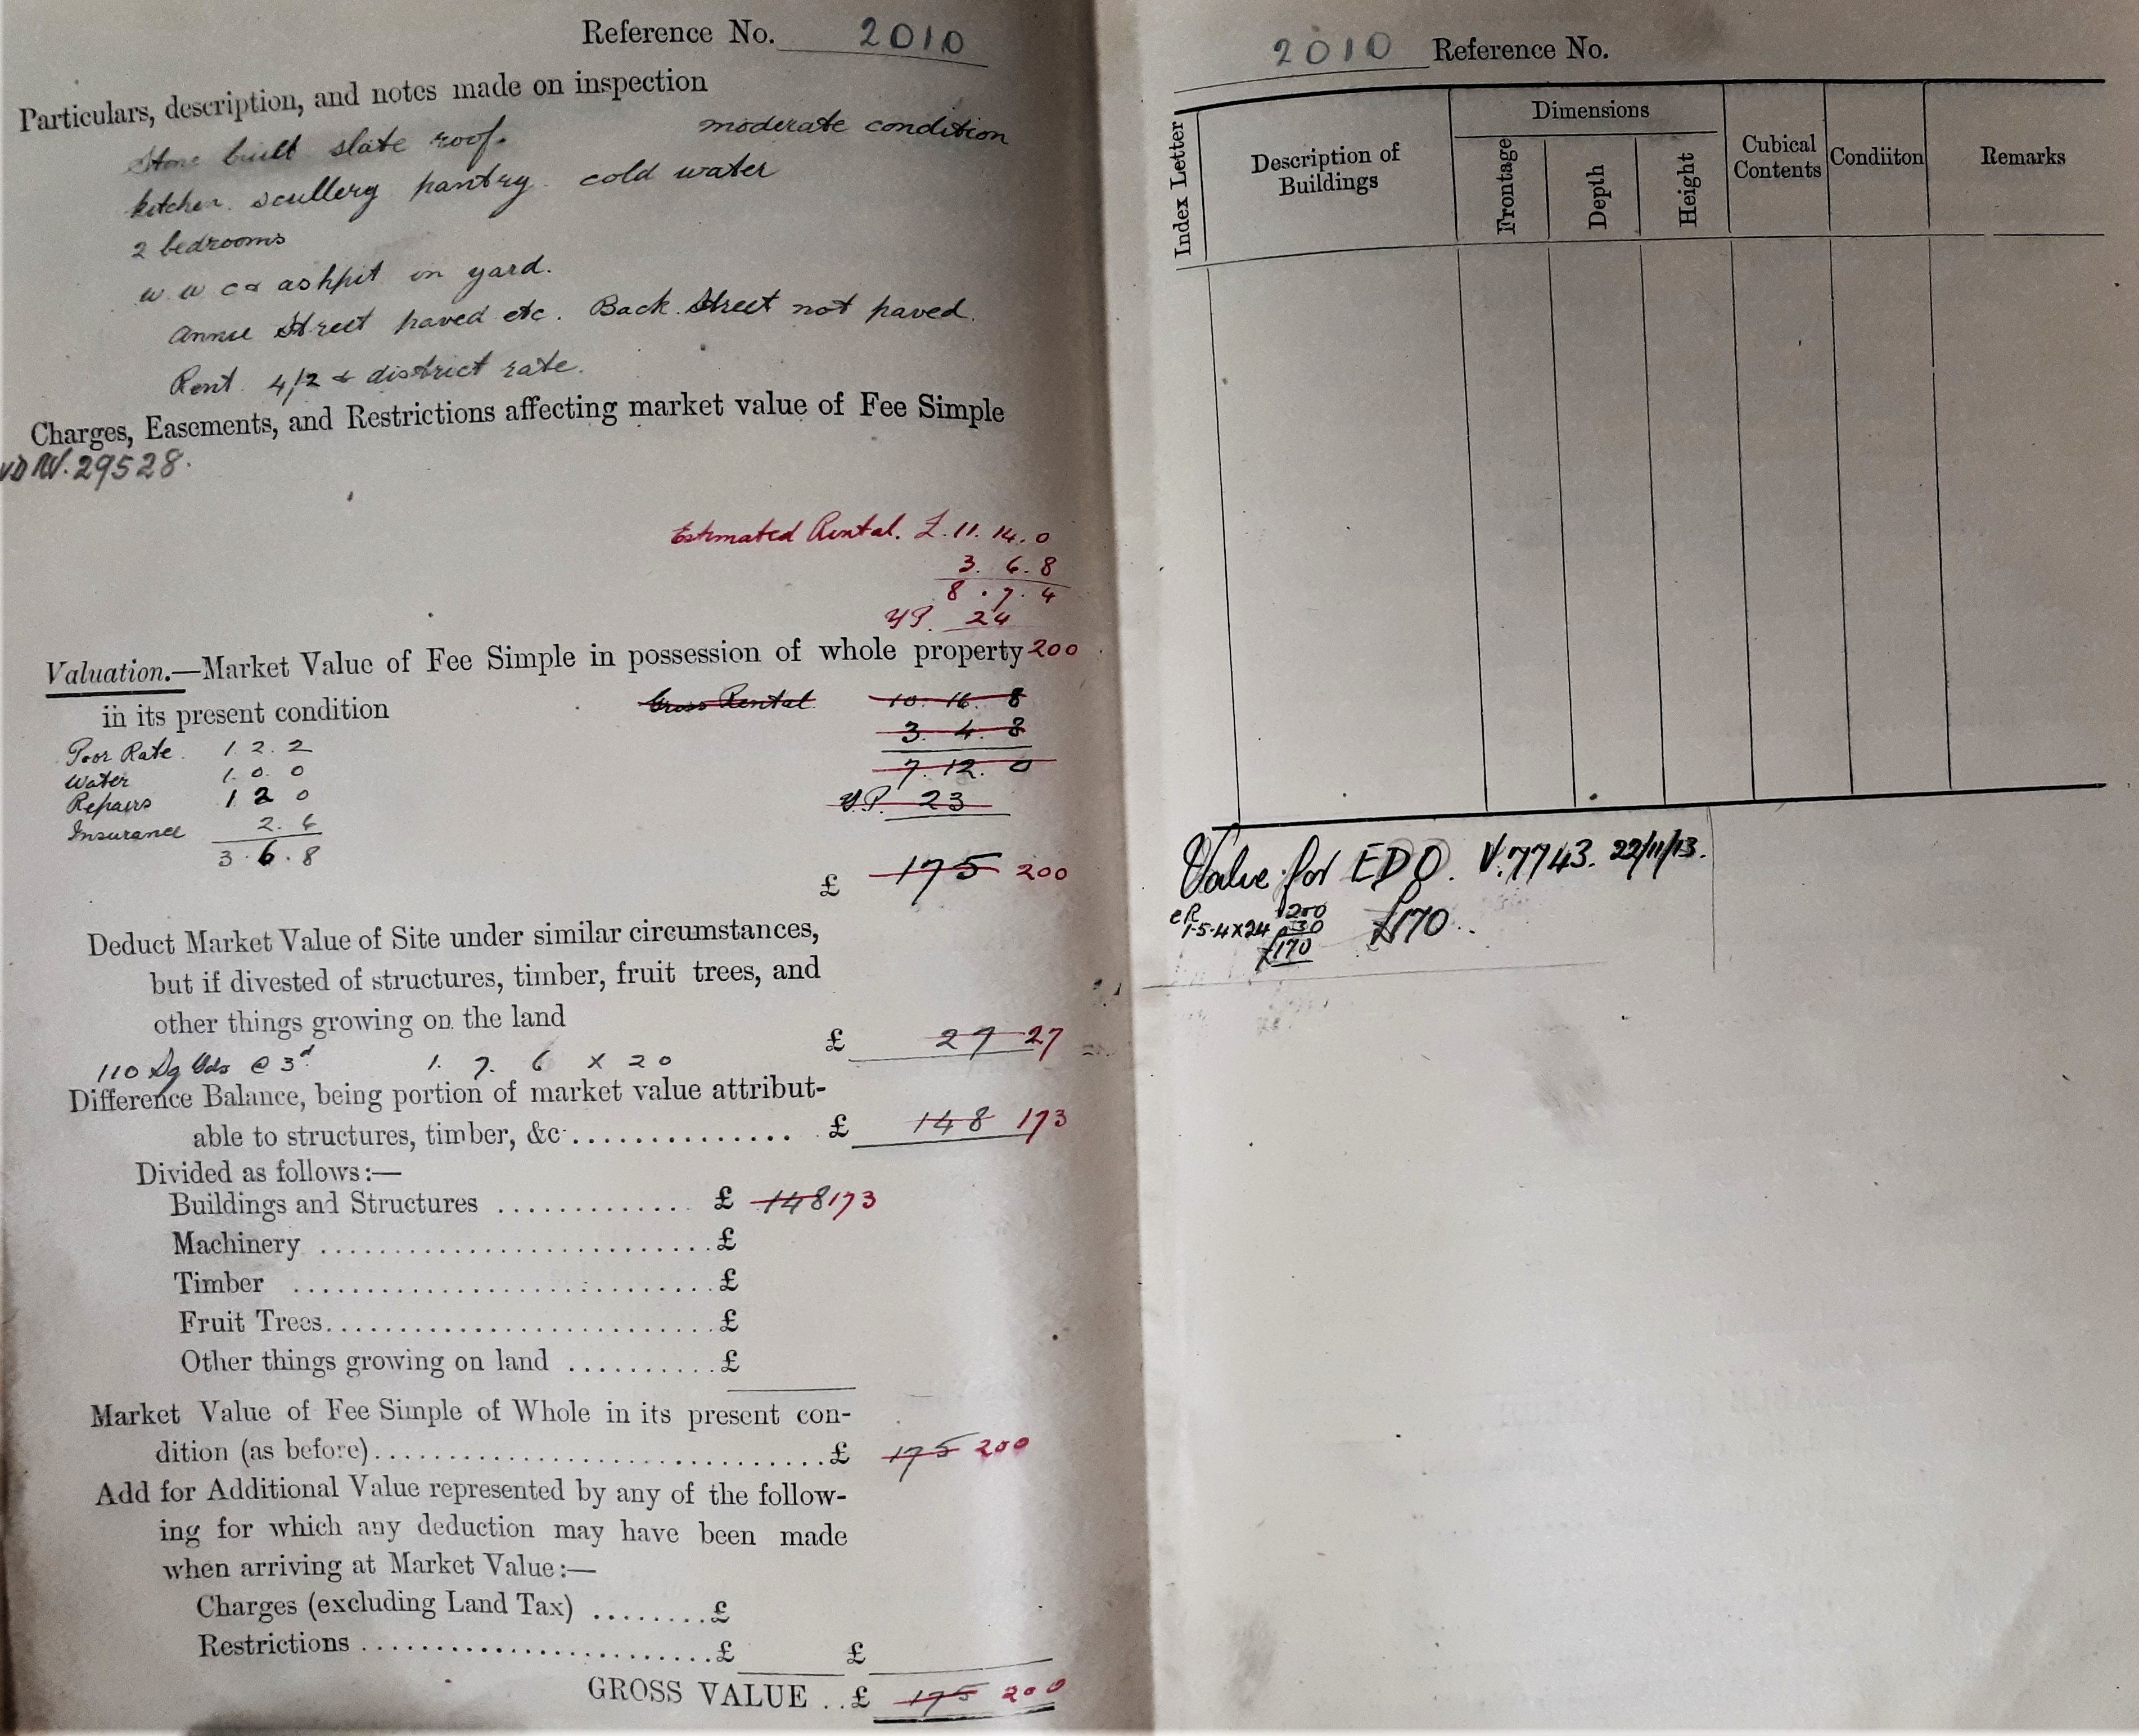 Reference No. 2010
Particulars, description, and notes made on inspection
Stone built slate roof. moderate condition
kitchen. scullery pantry. cold water
2 bedrooms
w w c & ashpit in yard.
Annie Street paved etc. Back Street not paved.
Rent 4/2 & district rate.
Charges, Easements, and Restrictions affecting market value of Fee Simple
29528.
Estimated Rental. £. 11. 14. 0
3. 6. 8
8. 7. 4
YP. 24
Valuation.—Market Value of Fee Simple in possession of whole property 200
in its present condition
Gross Rental 10. 16. 8
3. 4. 8
7. 12. 0
Y.P. 23
Poor Rate. 1. 2. 2
Water 1. 0. 0
Repairs 1 2 0
Insurance 2. 6
3. 6. 8
£ 175 200
Deduct Market Value of Site under similar circumstances,
but if divested of structures, timber, fruit trees, and
other things growing on the land
£ 27 27
110 Sq Yds @ 3d 1. 7. 6 x 20
Difference Balance, being portion of market value attribut-
able to structures, timber, &c. .............. £ 148 173
Divided as follows:—
Buildings and Structures ............. £ 148 173
Machinery ..........................£
Timber ............................£
Fruit Trees..........................£
Other things growing on land ..........£
Market Value of Fee Simple of Whole in its present con-
dition (as before)..............................£ 175 200
Add for Additional Value represented by any of the follow-
ing for which any deduction may have been made
when arriving at Market Value:—
Charges (excluding Land Tax) ........£
Restrictions .........................£ £
GROSS VALUE ..£ 175 200
2010 Reference No.
Index Letter
Description of
Buildings
Dimensions
Frontage
Depth
Height
Cubical
Contents
Condiiton
Remarks
Value for EDO. V.7743. 22/11/13.
eR
1-5-4x24
200
30
£170
£170..